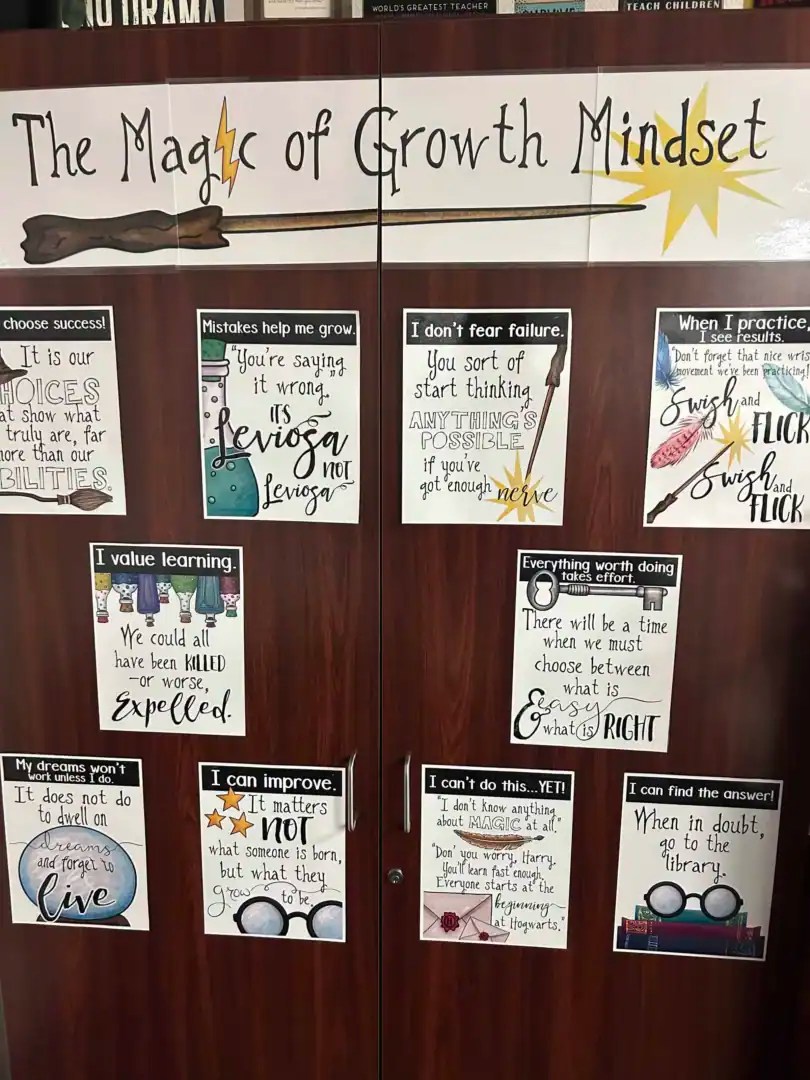 NO DRAMA
WORLD'S GREATEST TEACHER
TEACH CHILDREN
The Magic of Growth Mindset
choose success!
It is our
HOICES
at show what
truly are, far
more than our
BILITIES.
Mistakes help me grow.
"You're saying
it wrong."
ITS
Leviosa
NOT
Leviosa
I don't fear failure.
You sort of
start thinking
ANYTHING'S
POSSIBLE
if you've
got enough nerve
When I practice,
I see results.
"Don't forget that nice wris
movement we've been practicing!
Swish and
FLICK
Swish and
FLICK
I value learning.
We could all
have been KILLED
-or worse,
Expelled.
Everything worth doing
takes effort.
There will be a time
when we must
choose between
what is
easy
& what is RIGHT
My dreams won't
work unless I do.
It does not do
to dwell on
dreams
and forget to
live
I can improve.
It matters
NOT
what someone is born,
but what they
grow to be.
I can't do this...YET!
"I don't know anything
about MAGIC at all."
"Don' you worry, Harry.
You'll learn fast enough.
Everyone starts at the
beginning
at Hogwarts."
I can find the answer!
When in doubt,
go to the
library.